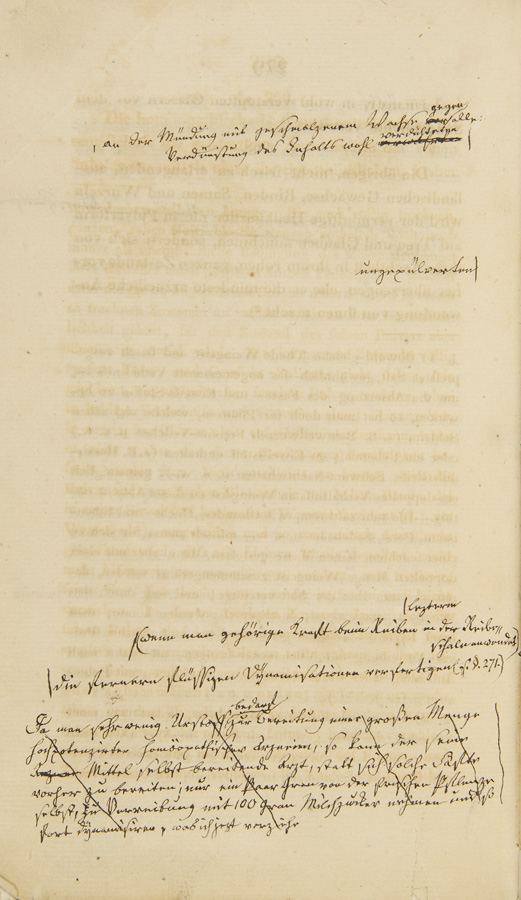 gegen
, an der Mündung mit geschmolzenem Wachse vor alle
Verdünstung des Inhalts wohl verdichteten
ungepülverten
(letzterm
(wenn man gehörige Kraft beim Reiben in der Reibe-
schale anwendet)
die fernern flüssigen Dynamisationen verfertigen (s. §. 271.)
bedarf
Da man sehr wenig Urstoff zur Bereitung einer großen Menge
hochpotenzirter homöopathischer Arzneien, so kann der seine
Mittel selbst bereitende Arzt, statt sich solche Säfte
vorher zu bereiten, nur ein Paar Gran von der frischen Pflanze
selbst, zu Verreibung mit 100 Gran Milchzucker nehmen und so
fort dynamisiren, was ich jetzt vorziehe